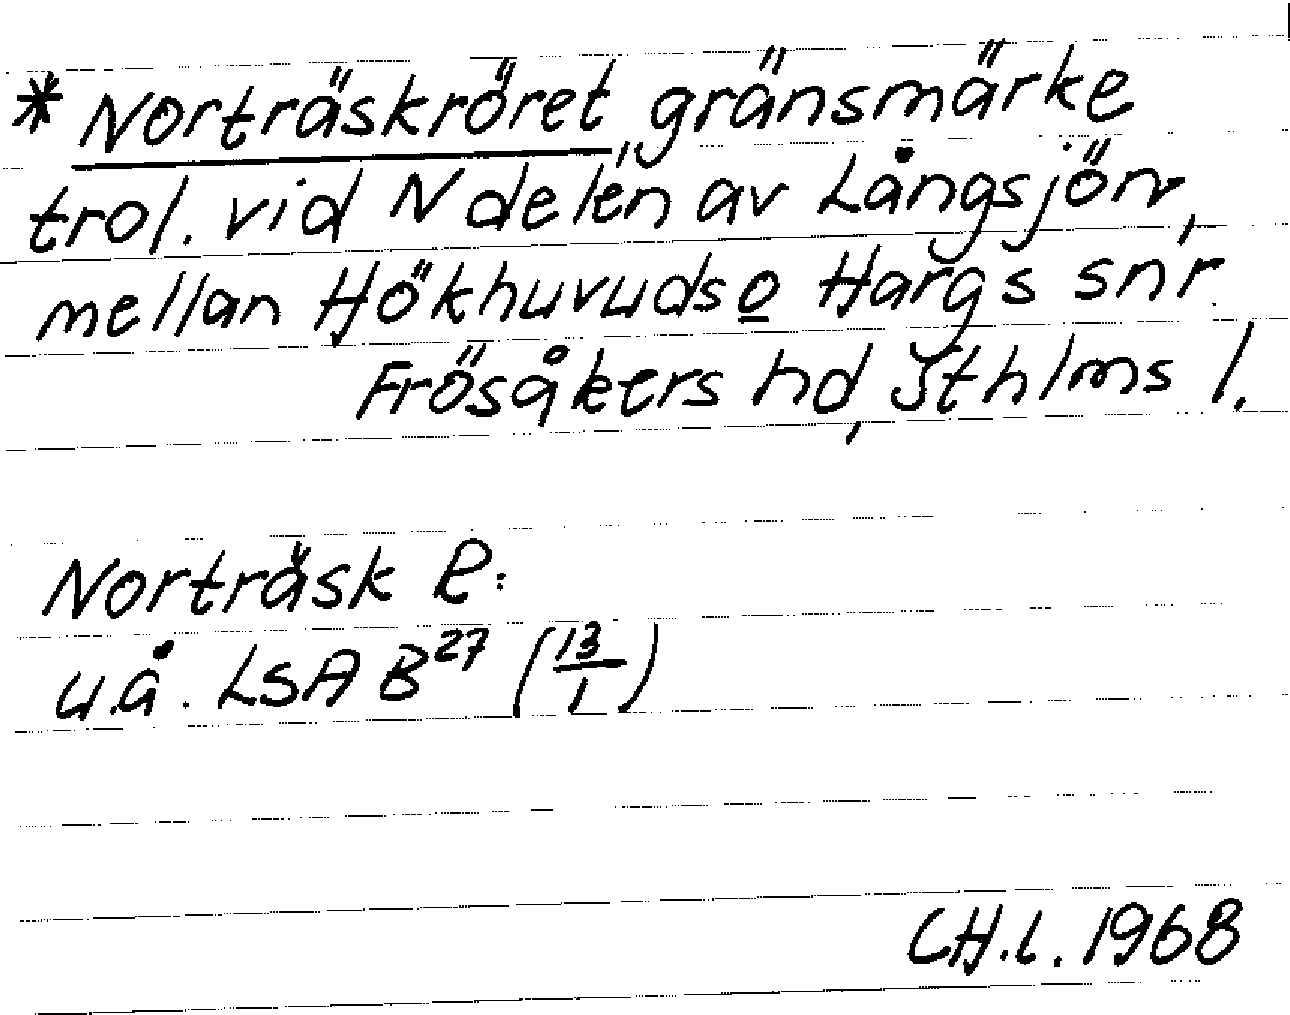 * Norträskröret, gränsmärke
trol. vid N delen av Långsjön,
mellan Hökhuvuds o Hargs snr
Frösåkers hd, Sthlms l.
Norträsk R:
u.å. LSA B27 (13/1)
CH.L. 1968